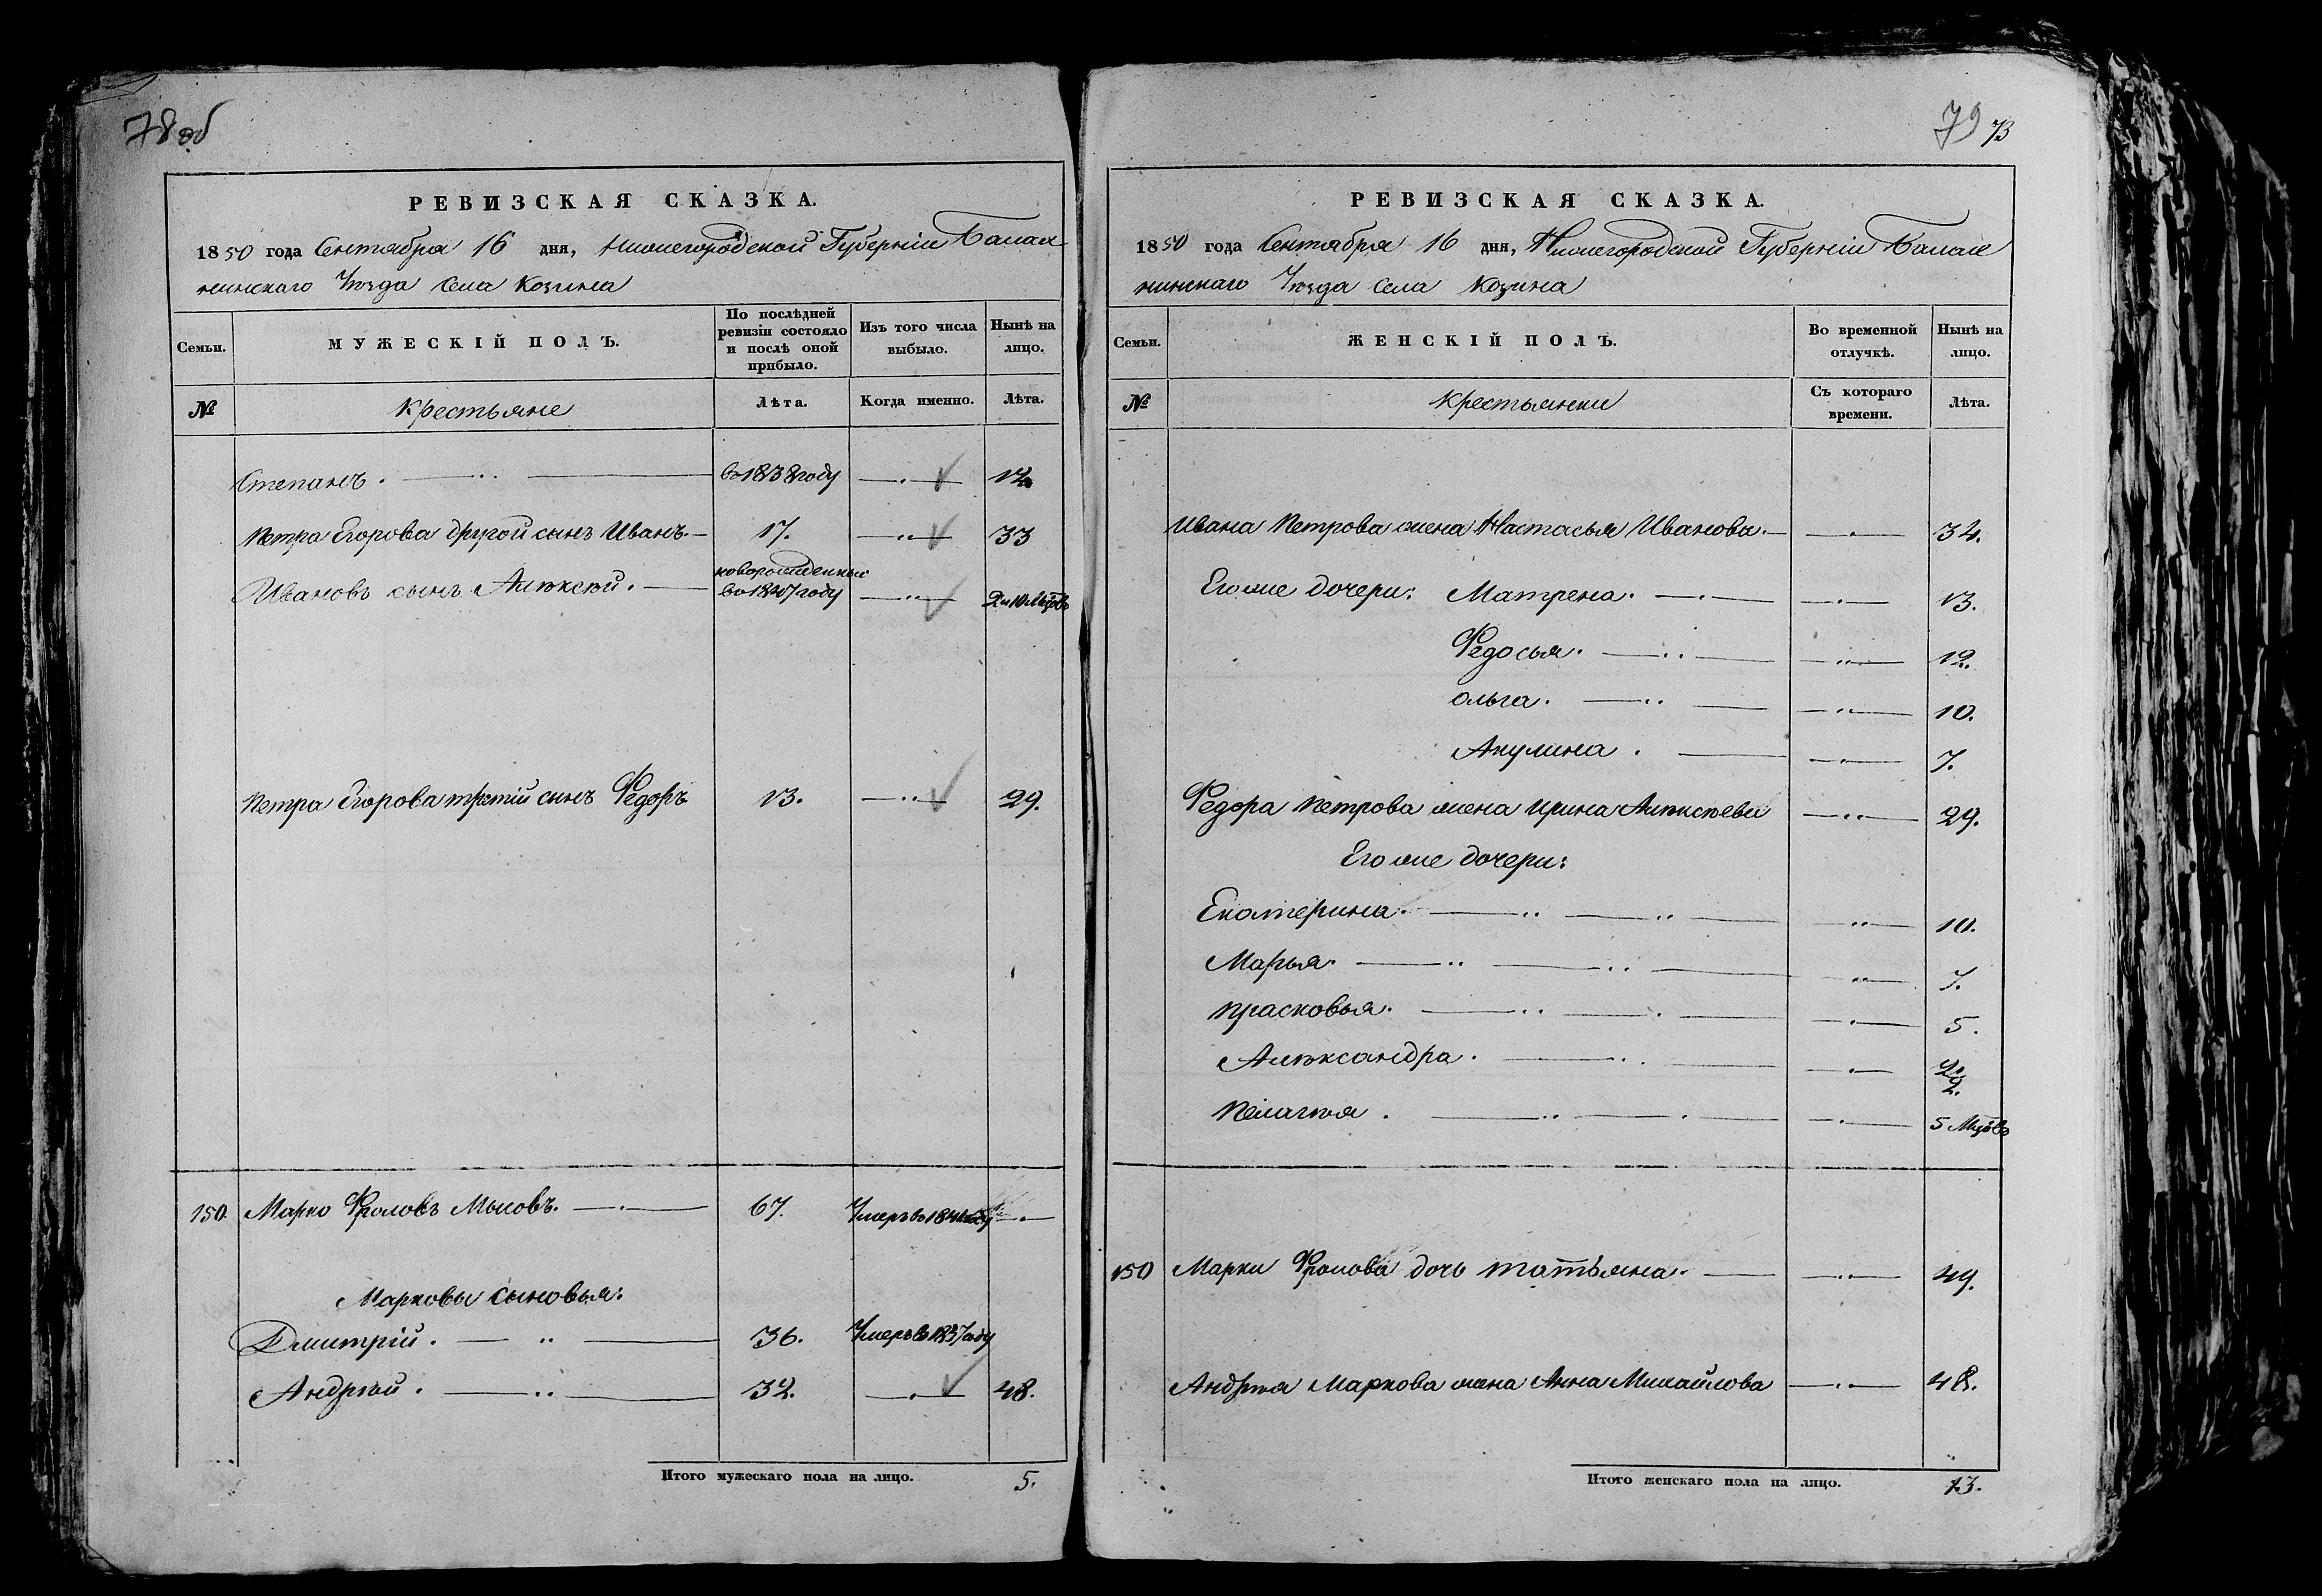 78 об
РЕВИЗСКАЯ СКАЗКА.
1850 года Сентября 16 дня, Нижегородской Губерніи Балах-
нинскаго Уѣзда Села Козина
Семьи.
МУЖЕСКІЙ ПОЛЪ.
По послѣдней ревизіи состояло и послѣ оной прибыло.
Изъ того числа выбыло.
Нынѣ на лицо.
№ Крестьяне Лѣта. Когда именно. Лѣта.
Степанъ. в 1838 году 12
Петра Егорова другой сынъ Иванъ. 17. 33
новорожденный
Ивановъ сынъ Алѣксѣй. в 1847 году 2 и 10 Мцовъ
Петра Егорова третій сынъ Федоръ 13. 29.
150 Марко Фроловъ Мысовъ. 67. Умеръ в 1841 году
Марковы сыновья:
Дмитрій. 36. Умеръ в 1837 году
Андрѣй. 32. 48.
Итого мужескаго пола на лицо. 5.
79 73
РЕВИЗСКАЯ СКАЗКА.
1850 года Сентября 16 дня, Нижегородской Губерніи Балах
нинскаго Уѣзда Села Козина
Семьи.
ЖЕНСКІЙ ПОЛЪ.
Во временной отлучкѣ.
Нынѣ на лицо.
№ Крестьянки Съ котораго времени. Лѣта.
Ивана Петрова жена Настасья Иванова. 34.
Его же дочери: Матрена. 13.
Федосья. 12.
Ольга. 10.
Акулина. 7.
Федора Петрова жена Ирина Алѣксѣева 29.
Его же дочери:
Екатерина. 10.
Марья. 7.
Прасковья. 5.
Алѣксандра. 2.
2.
Пелагѣя. 5 Мцовъ
150 Марки Фролова дочь Татьяна. 49.
Андрѣя Маркова жена Анна Михайлова 48.
Итого женскаго пола на лицо. 13.